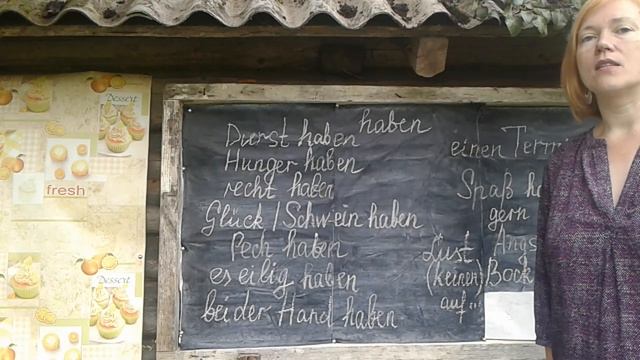 Dessert
fresh
Dessert
haben
Durst haben
Hunger haben
recht haben
Glück / Schwein haben
Pech haben
es eilig haben
bei der Hand haben
einen Term
Spaß ha
gern
Angs
Lust
(keinen) Bock
auf...